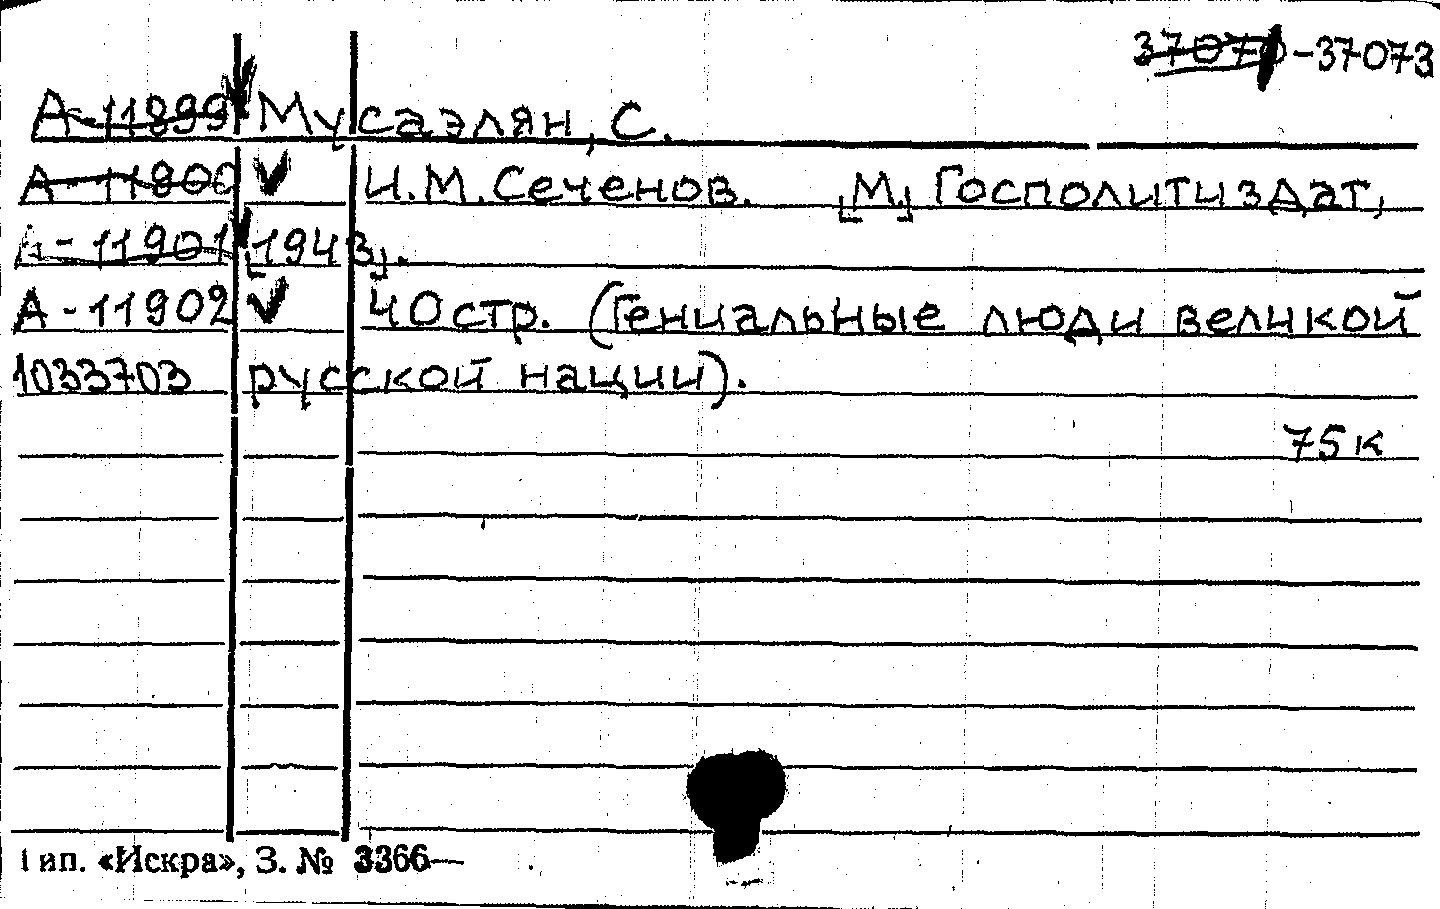 37070-37073
А-11899 Мусаэлян, С.
А-11900 И.М.Сеченов. [М.] Госполитиздат,
А-11901 [1943].
А-11902 40стр. (Гениальные люди великой
1033703 русской нации).
75к
Тип. «Искра», З. № 3366—